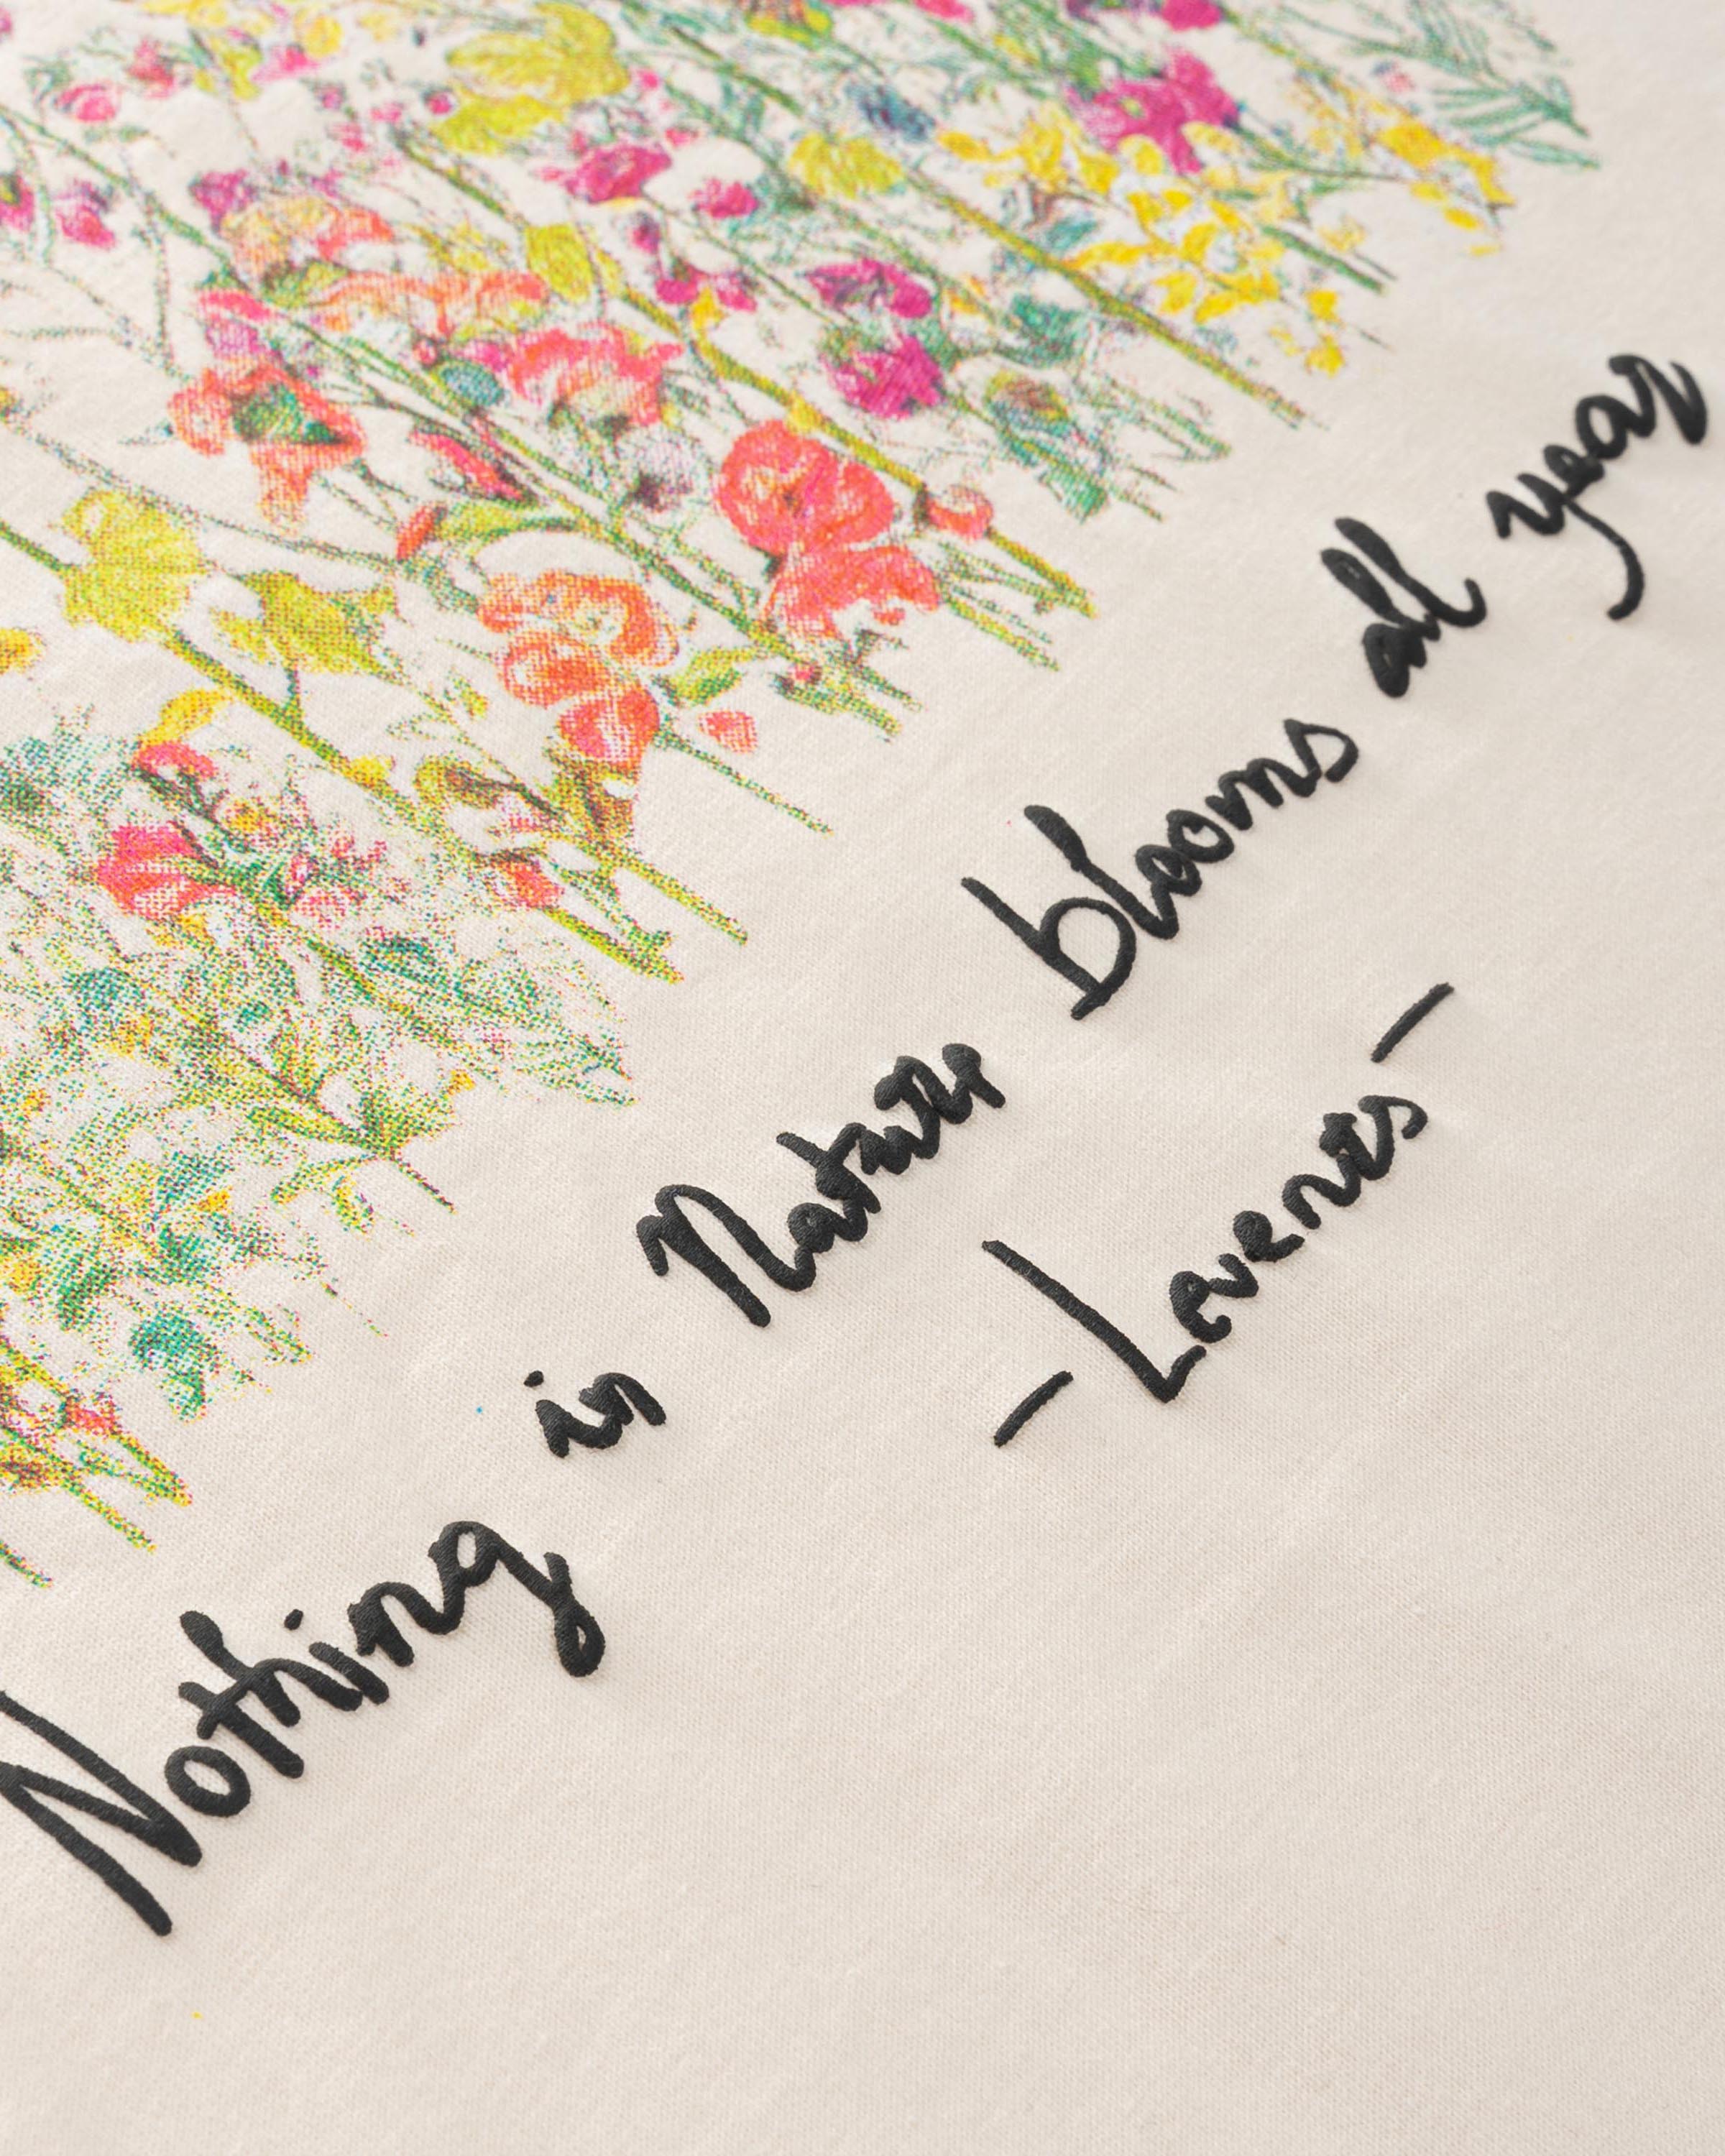 Nothing in Nature blooms all year
- Lovents -